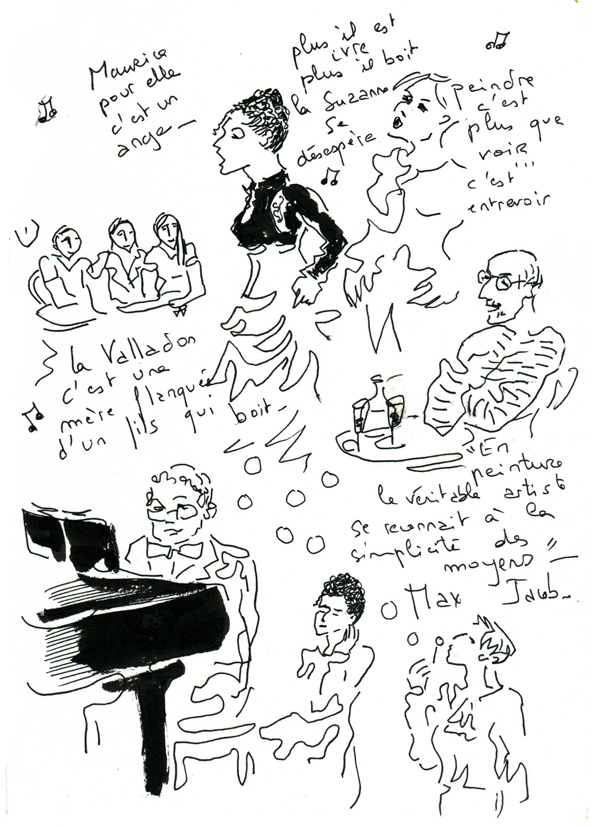 Maurice
pour elle
c'est un
ange_
plus il est
ivre
plus il boit
la Suzanne
se
désespère
peindre
c'est
plus que
voir
c'est!!!
entrevoir
la Valladon
c'est une
mère flanquée
d'un fils qui boit_
"En
peinture
le véritable artiste
se reconnait à la
simplicité des
moyens"_
Max Jacob_